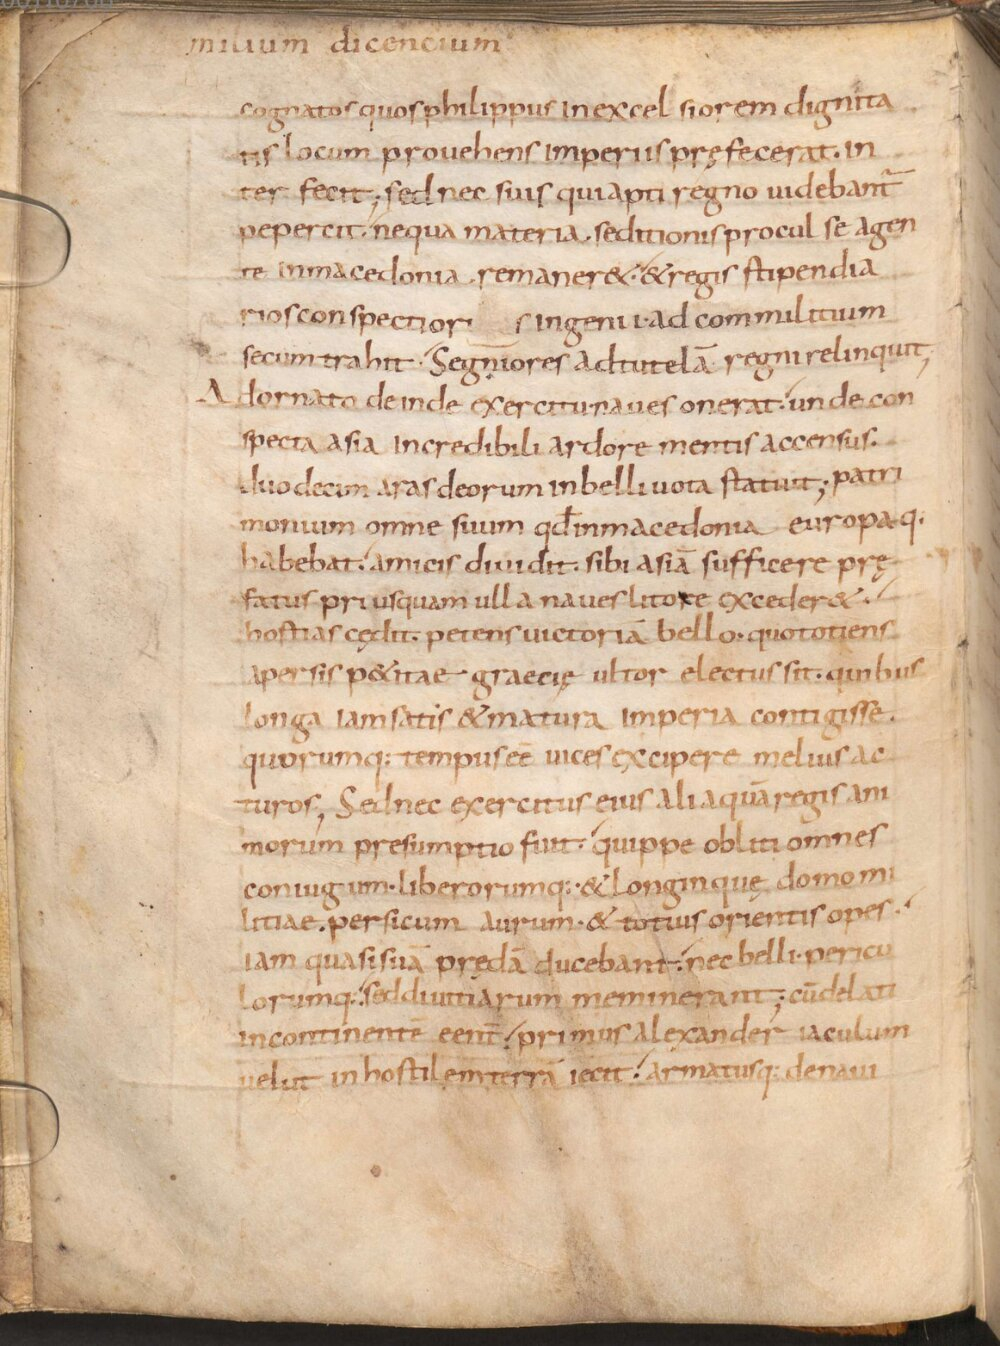 milium dicencium
cognatos quos philippus in excelsiorem dignita
tis locum prouehens imperiis pręfecerat. in
ter fecit; sed nec suis qui apti regno uidebant̄
pepercit. nequa materia. seditionis procul se agen
te in macedonia. remaner&. & regis stipendia
rios conspectiori s ingenii. ad commilitium
secum trahit. Segniores ad tutelā regni relinquit;
Adornato deinde exercitu. naues onerat. unde con
specta asia incredibili ardore mentis accensus.
duodecim aras deorum in belli uota statuit; patri
monium omne suum qđ in macedonia europaq.
habebat. amicis diuidit. sibi asiā sufficere prę
fatus priusquam ulla naues litore exceder&.
hostias cędit. petens uictoriā bello. quo totiens
a persis p&itae graecię ultor electus sit. quibus
longa iam satis & matura imperia contigisse.
quorumq: tempus eē uices excipere melius ac
turos; Sed nec exercitus eius alia quā regis ani
morum presumptio fuit. quippe obliti omnes
coniugum. liberorumq:. & longinquę domo mi
litiae. persicum aurum. & totius orientis opes.
iam quasi suā prędā ducebant. nec belli. pericu
lorumq:. sed diuitiarum meminerant; cū delati
in continentē eent̄. primus alexander iaculum
uelut in hostilem terrā iecit. armatusq: de naui